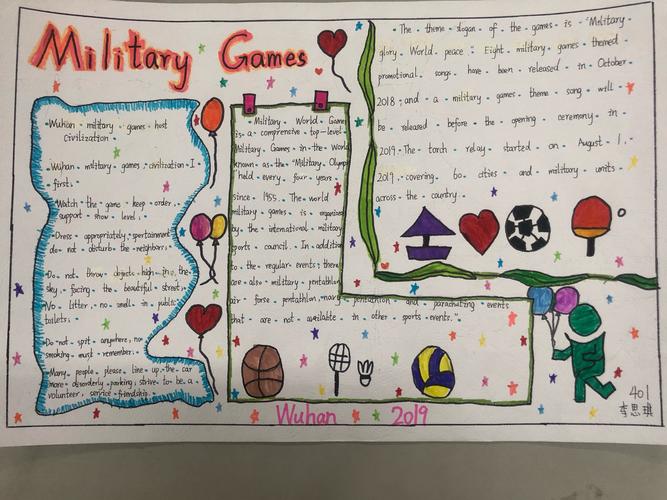 Military Games
Wuhan military games host
civilization.
Wuhan military games civilization I
first.
Watch the game keep order,
support show level.
Dress appropriately, sportainment
do not disturb the neighbors.
Do not throw objects high in the
sky, facing the beautiful street.
No litter, no smell in public
toilets.
Do not spit anywhere, no
smoking must remember.
Many people please line up, the car
more disorderly parking, strive to be a
volunteer, service friendship.
Military World Game
is a comprenive top-level
Military Games in the World
known as the "Military Olymp
held every four years
since 1955. The world
military games is organize
by the international military
sports council. In addition
to the regular events, there
are also military pentathlon
air forse pentathlon, navy pentathlon and parachuting events
that are not available in other sports events.".
The theme slogan of the games is "Military
glory World peace". Eight military games themed
promotional songs have been released in October
2018, and a military games theme song will
be released before the opening ceremony in
2019. The torch relay started on August 1,
2019, covering bo cities and military units
across the country.
Wuhan 2019
401
李思琪